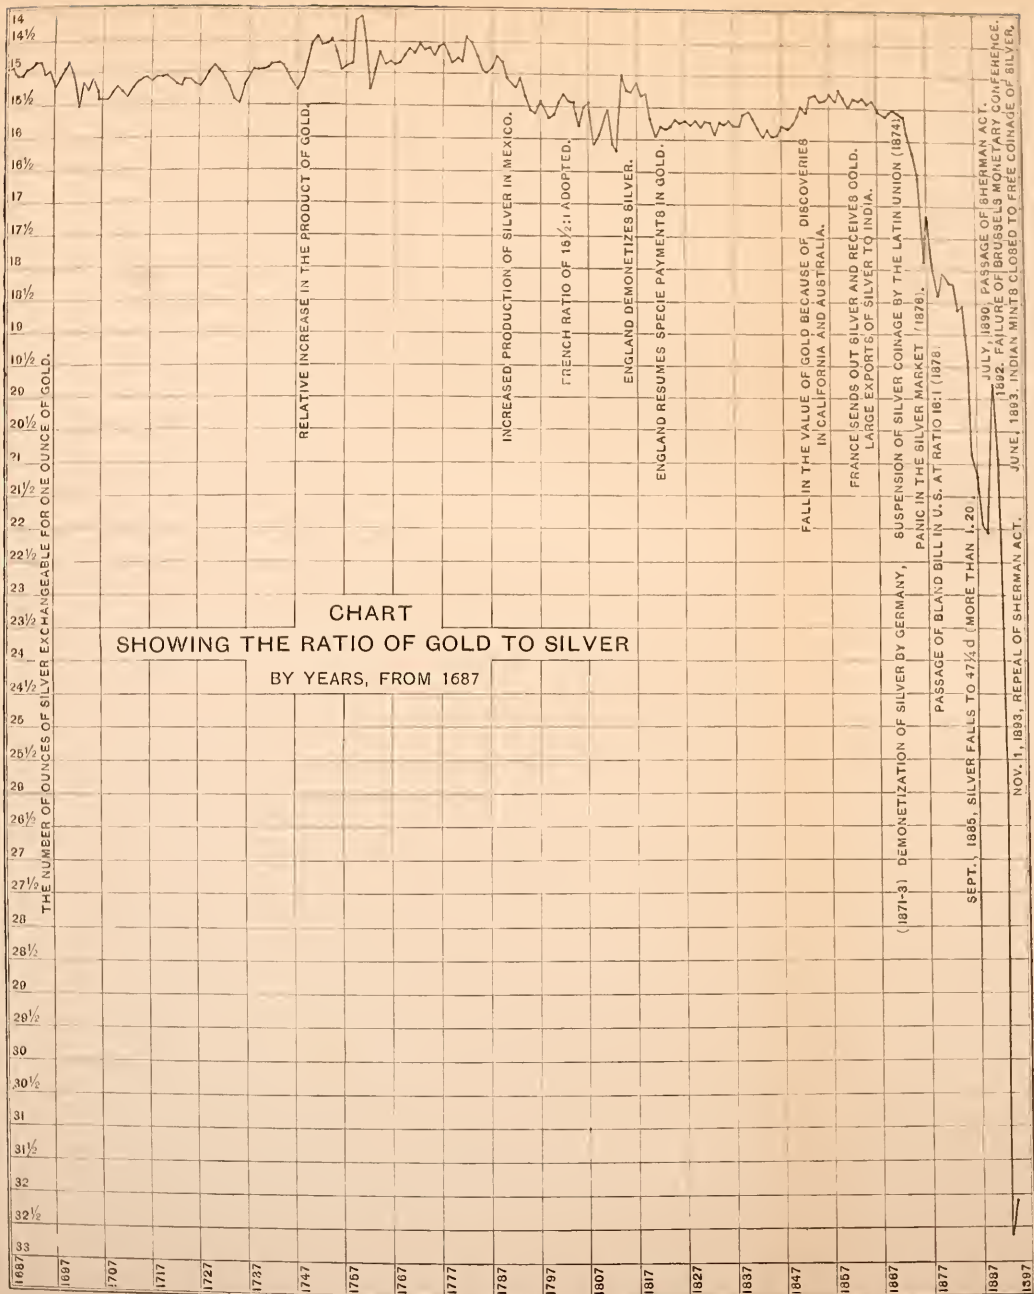 14
14½
15
15½
16
16½
17
17½
18
18½
19
19½
20
20½
21
21½
22
22½
23
23½
24
24½
25
25½
26
26½
27
27½
28
28½
29
29½
30
30½
31
31½
32
32½
33
THE NUMBER OF OUNCES OF SILVER EXCHANGEABLE FOR ONE OUNCE OF GOLD.
CHART
SHOWING THE RATIO OF GOLD TO SILVER
BY YEARS, FROM 1687
RELATIVE INCREASE IN THE PRODUCT OF GOLD.
INCREASED PRODUCTION OF SILVER IN MEXICO.
FRENCH RATIO OF 15½:1 ADOPTED.
ENGLAND DEMONETIZES SILVER.
ENGLAND RESUMES SPECIE PAYMENTS IN GOLD.
FALL IN THE VALUE OF GOLD BECAUSE OF DISCOVERIES
IN CALIFORNIA AND AUSTRALIA.
FRANCE SENDS OUT SILVER AND RECEIVES GOLD.
LARGE EXPORTS OF SILVER TO INDIA.
(1871-3) DEMONETIZATION OF SILVER BY GERMANY, SUSPENSION OF SILVER COINAGE BY THE LATIN UNION (1874)
PANIC IN THE SILVER MARKET (1876).
PASSAGE OF BLAND BILL IN U.S. AT RATIO 16:1 (1878)
SEPT., 1885, SILVER FALLS TO 47¼d (MORE THAN 1.20).
JULY, 1890, PASSAGE OF SHERMAN ACT.
1892. FAILURE OF BRUSSELS MONETARY CONFERENCE.
NOV. 1, 1893, REPEAL OF SHERMAN ACT. JUNE, 1893, INDIAN MINTS CLOSED TO FREE COINAGE OF SILVER.
1687
1697
1707
1717
1727
1737
1747
1757
1767
1777
1787
1797
1807
1817
1827
1837
1847
1857
1867
1877
1887
1897